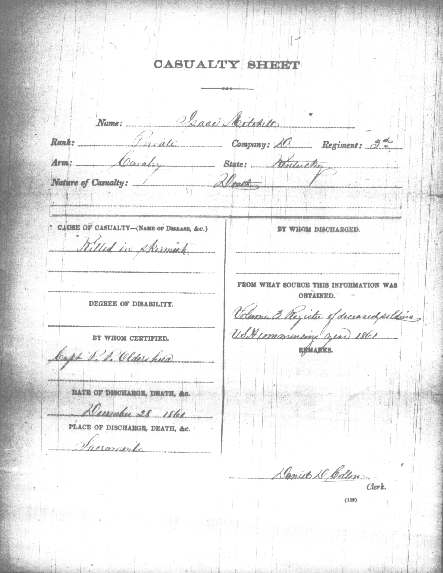 CASUALTY SHEET
Name: Isaac Mitchell
Rank: Private Company: D Regiment: 3rd
Arm: Cavalry State: Kentucky
Nature of Casualty: Death
CAUSE OF CASUALTY—(NAME OF DISEASE, &C.)
Killed in skirmish
DEGREE OF DISABILITY.
BY WHOM CERTIFIED.
Capt
DATE OF DISCHARGE, DEATH, &C.
December 28 1861
PLACE OF DISCHARGE, DEATH, &C.
Sacramento
BY WHOM DISCHARGED.
FROM WHAT SOURCE THIS INFORMATION WAS
OBTAINED.
Volume 3 Register of deceased soldiers
commencing year 1861
REMARKS.
Daniel D
Clerk.